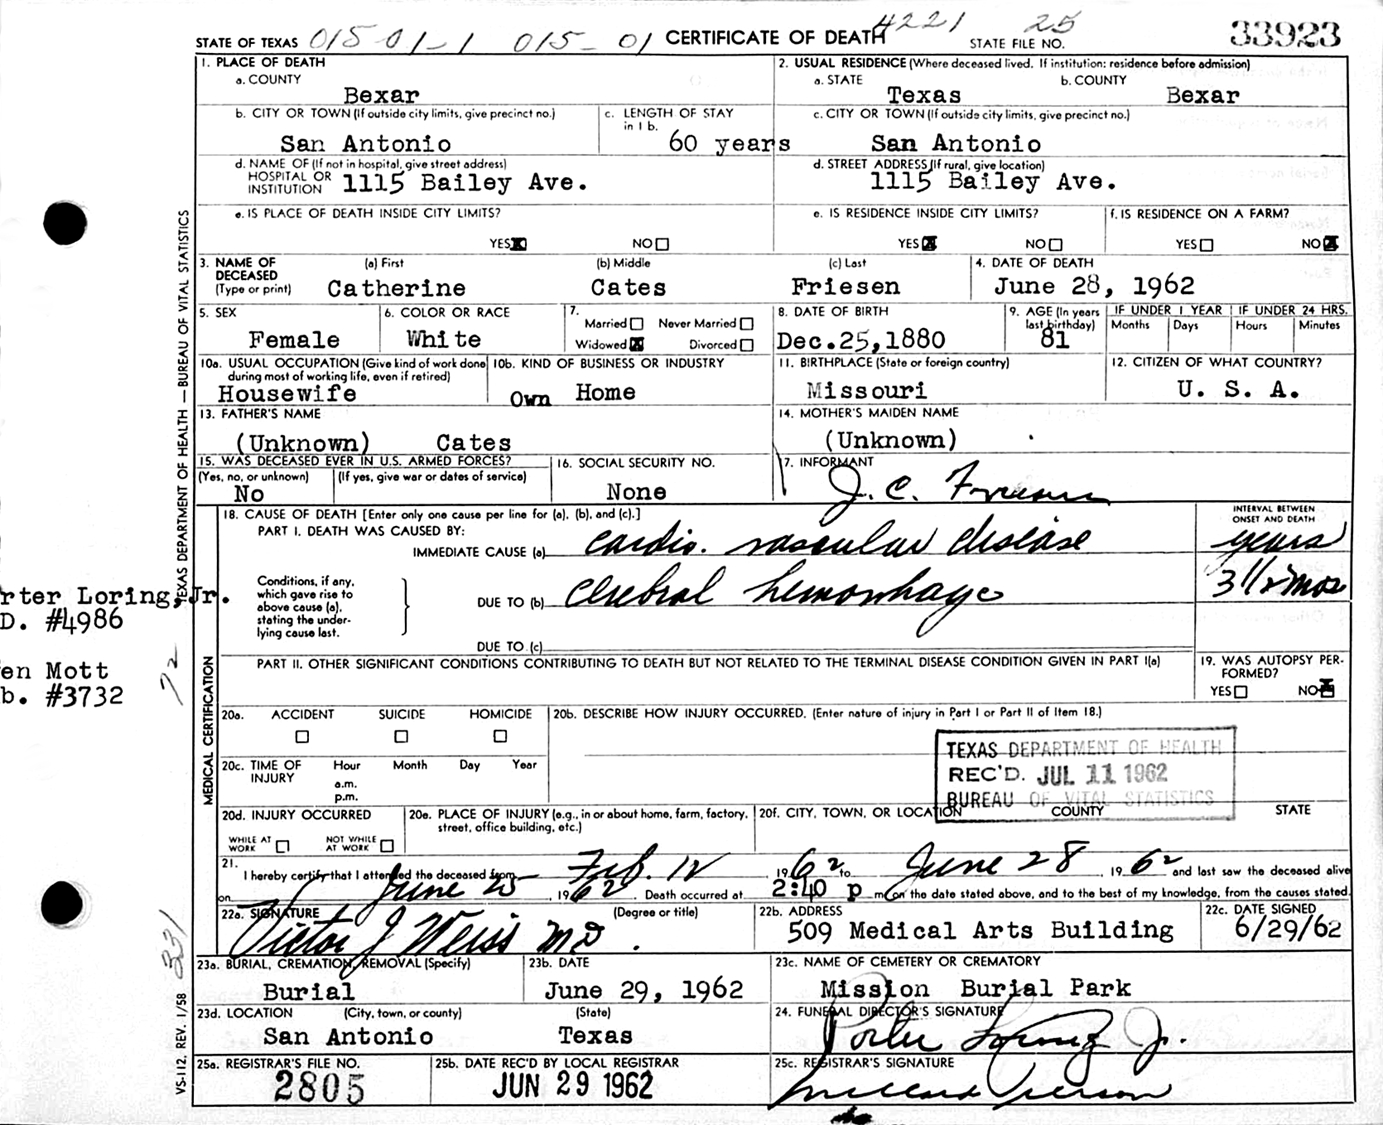 STATE OF TEXAS 015 01-1 015-01 CERTIFICATE OF DEATH 4221 STATE FILE NO. 25 33923
1. PLACE OF DEATH
a. COUNTY
Bexar
2. USUAL RESIDENCE (Where deceased lived. If institution: residence before admission)
a. STATE b. COUNTY
Texas Bexar
b. CITY OR TOWN (If outside city limits, give precinct no.)
San Antonio
c. LENGTH OF STAY
in 1 b.
60 years
c. CITY OR TOWN (If outside city limits, give precinct no.)
San Antonio
d. NAME OF (If not in hospital, give street address)
HOSPITAL OR
INSTITUTION 1115 Bailey Ave.
d. STREET ADDRESS (If rural, give location)
1115 Bailey Ave.
e. IS PLACE OF DEATH INSIDE CITY LIMITS?
YES NO
e. IS RESIDENCE INSIDE CITY LIMITS?
YES NO
f. IS RESIDENCE ON A FARM?
YES NO
3. NAME OF
DECEASED
(Type or print)
(a) First (b) Middle (c) Last
Catherine Cates Friesen
4. DATE OF DEATH
June 28, 1962
5. SEX
Female
6. COLOR OR RACE
White
7.
Married Never Married
Widowed Divorced
8. DATE OF BIRTH
Dec.25,1880
9. AGE (In years
last birthday)
81
IF UNDER 1 YEAR IF UNDER 24 HRS.
Months Days Hours Minutes
10a. USUAL OCCUPATION (Give kind of work done
during most of working life, even if retired)
Housewife
10b. KIND OF BUSINESS OR INDUSTRY
Own Home
11. BIRTHPLACE (State or foreign country)
Missouri
12. CITIZEN OF WHAT COUNTRY?
U. S. A.
13. FATHER'S NAME
(Unknown) Cates
14. MOTHER'S MAIDEN NAME
(Unknown)
15. WAS DECEASED EVER IN U.S. ARMED FORCES?
(Yes, no, or unknown) (If yes, give war or dates of service)
No
16. SOCIAL SECURITY NO.
None
17. INFORMANT
J. C. Friesen
18. CAUSE OF DEATH [Enter only one cause per line for (a), (b), and (c).]
INTERVAL BETWEEN
ONSET AND DEATH
PART I. DEATH WAS CAUSED BY:
IMMEDIATE CAUSE (a) cardio. vascular disease years
Conditions, if any,
which gave rise to
above cause (a),
stating the under-
lying cause last.
DUE TO (b) cerebral hemorrhage 3 1/2 mos
DUE TO (c)
PART II. OTHER SIGNIFICANT CONDITIONS CONTRIBUTING TO DEATH BUT NOT RELATED TO THE TERMINAL DISEASE CONDITION GIVEN IN PART I(a)
19. WAS AUTOPSY PER-
FORMED?
YES NO
rter Loring, Jr.
D. #4986
en Mott
b. #3732
72
331
TEXAS DEPARTMENT OF HEALTH—BUREAU OF VITAL STATISTICS
MEDICAL CERTIFICATION
VS-112, REV. 1/58
20a. ACCIDENT SUICIDE HOMICIDE
20b. DESCRIBE HOW INJURY OCCURRED. (Enter nature of injury in Part I or Part II of Item 18.)
20c. TIME OF
INJURY
Hour Month Day Year
a.m.
p.m.
TEXAS DEPARTMENT OF HEALTH
REC'D. JUL 11 1962
BUREAU OF VITAL STATISTICS
20d. INJURY OCCURRED
WHILE AT
WORK
NOT WHILE
AT WORK
20e. PLACE OF INJURY (e.g., in or about home, farm, factory,
street, office building, etc.)
20f. CITY, TOWN, OR LOCATION COUNTY STATE
21.
I hereby certify that I attended the deceased from Feb. 12, 1962 to June 28 1962 and last saw the deceased alive
on June 25, 1962 Death occurred at 2:40 p m., on the date stated above, and to the best of my knowledge, from the causes stated.
22a. SIGNATURE (Degree or title)
Victor J Weiss MD.
22b. ADDRESS
509 Medical Arts Building
22c. DATE SIGNED
6/29/62
23a. BURIAL, CREMATION, REMOVAL (Specify)
Burial
23b. DATE
June 29, 1962
23c. NAME OF CEMETERY OR CREMATORY
Mission Burial Park
23d. LOCATION (City, town, or county) (State)
San Antonio Texas
24. FUNERAL DIRECTOR'S SIGNATURE
Porter Loring Jr.
25a. REGISTRAR'S FILE NO.
2805
25b. DATE REC'D BY LOCAL REGISTRAR
JUN 29 1962
25c. REGISTRAR'S SIGNATURE